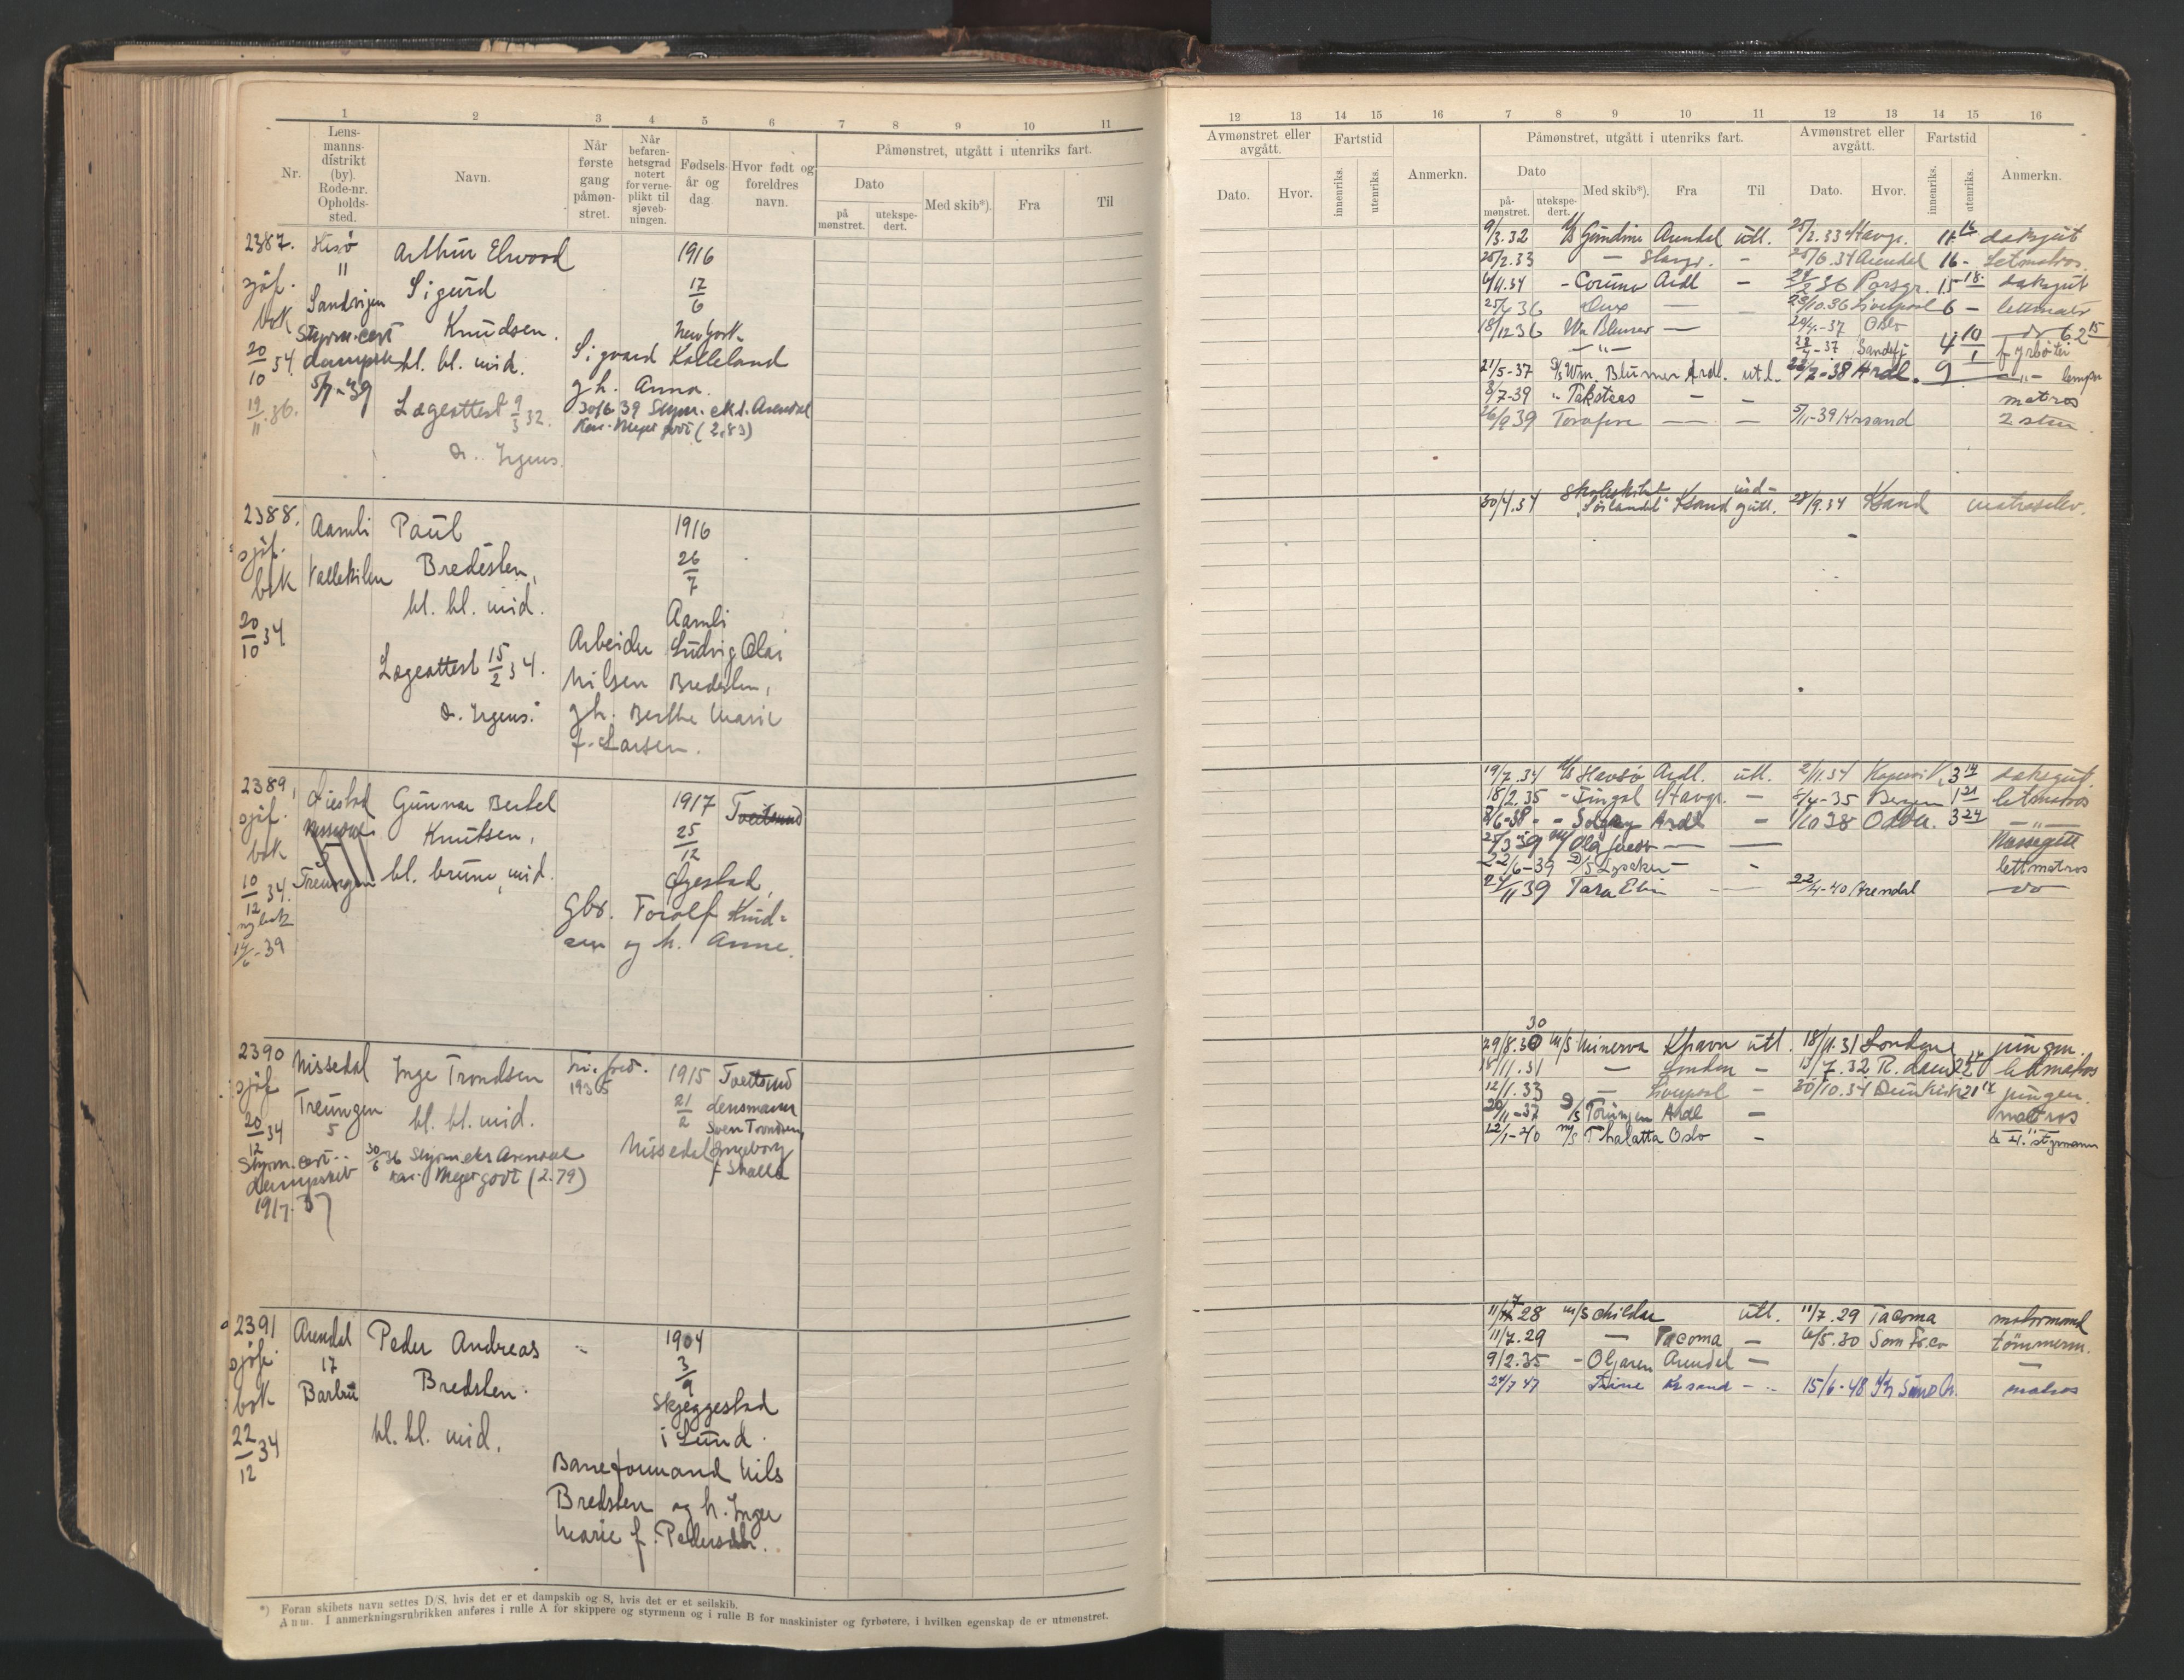 1 2 3 4 5 6 7 8 9 10 11
Nr.
Lens-manns-distrikt (by). Rode-nr. Opholds-sted.
Navn.
Når første gang påmøn-stret.
Når befaren-hetsgrad notert for verne-plikt til sjøveb-ningen.
Fødsels-år og dag.
Hvor født og foreldres navn.
Påmønstret, utgått i utenriks fart.
Dato
på mønstret.
utekspe-dert.
Med skib*).
Fra
Til
2387. Hisø Arthur Elwood 1916
sjøf. " Sigurd 17/6
bok Sandvigen Knudsen. New York
20/10 34. Styrm.cert dampsk bl. bl. mid. Sigvard Kalleland
5/7-39 gh. Anna.
19/11.36. Lægeattest 9/3 32. 30/6 39 Styrm. eks. Arendal
Kar. Meget godt (2,83)
D. Irgens.
2388. Aamli Paul 1916
sjøf. Bredesten, 26/7
bok Vallekilen
bl. bl. mid. Aamli
20/10 34 Arbeider Ludvig Olai
Lægeattest 15/2 34. Nilsen Bredesten,
D. Irgens. gh. Berthe Marie
f. Larsen.
2389, Øiestad Gunnar Bertel 1917 Tveitsund
sjøf. Nissedal Knutsen, 25/12
bok Treungen bl. brune, mid. Øyestad,
10/12 34. Gbr. Torolf Knud-
ny bok sen og h. Anne.
14/6-39
2390 Nissedal Inge Trondsen 1915 Tveitsund
sjøf. 1935 21/2 Lensmann
Treungen bl. bl. mid. Sven Trondsen,
20/12 34 5 Nissedal Ingeborg
Styrm.cert. 30/6 36 Styrm.eks Arendal f. Skalla
dampskib Kar. Meget godt (2.79)
19/7-37
2391 Arendal Peder Andreas - 1904
sjøf. 17 Bredsten. 3/9
bok Barbu Skjeggestad
22/12 34 bl. bl. mid. i Lund.
Baneformand Nils
Bredsten og h. Inger
Marie f. Pedersen.
*) Foran skibets navn settes D/S, hvis det er et dampskib og S, hvis det er et seilskib.
Anm. I anmerkningsrubrikken anføres i rulle A for skippere og styrmenn og i rulle B for maskinister og fyrbøtere, i hvilken egenskap de er utmønstret.
12 13 14 15 16 7 8 9 10 11 12 13 14 15 16
Avmønstret eller avgått.
Dato. Hvor.
Fartstid
innenriks. utenriks.
Anmerkn.
Påmønstret, utgått i utenriks fart.
Dato
på-mønstret. utekspe-dert.
Med skib*). Fra Til
Avmønstret eller avgått.
Dato. Hvor.
Fartstid
innenriks. utenriks.
Anmerkn.
9/3.32 Gundine Arendal utl. 25/2.33 Stavgr. 11 16 daksgut
25/2.33 — Stavgr. - 25/6.34 Arendal 16 - Letmatros
4/11.34 - Coruna Ardl - 24/2 36 Porsgr. 15 18 daksgut
25/4 36 — 29/10.36 Liverpool 6 - lettmatr
18/12 36 Wm Blumer — 29/4-37 Oslo do 6 2 15
— " — 28/4-37 Sandefj 4 10/1 fyrbøter
21/5-37 D/S Wm. Blumer Ardl. utl. 38 Ardl. 9 — " — lemper
8/7-39 " Takstaas - - matros
26/9 39 Torafire — — 5/11-39 Krsand 2 stm
30/4.34 Skoleskibet "Sörlandet" Ksand utl. 28/9.34 Ksand matroselev.
19/7.34 Havsö Ardl. utl. 2/11.34 Kopervik 3 14 daksgut
18/2.35 - Fingal Stavgr. - 8/4-35 Bergen 1 21 letmatros
8/6-38 - Solgry Ardl - 1/10 38 Odda. 3 24 — " —
25/3 39 M/ — — Massegutt
22/6-39 D/S Lysaker - - lettmatros
24/11 39 Tara Elin — 22/4-40 Arendal do
30
29/8.30 M/S Minerva Khavn utl. 18/11.31 London jungm.
18/11.31 — London - 13/7.32 R.dam letmatros
12/1.33 — Liverpool - 30/10.34 Dunkirk 21 14 jungm.
29/11-37 D/S Torungen Ardl - matros
22/1-40 M/S Thalatta Oslo - 4. styrmann
11/7 28 M/S Hildar utl. 11/7.29 Tacoma motormand
11/7.29 — Tacoma - 6/5.30 San Fr.co tömmerm.
9/2.35 - Oljaren Arendal — —
24/7 47 Trine Krsand - - 15/6-48 matros